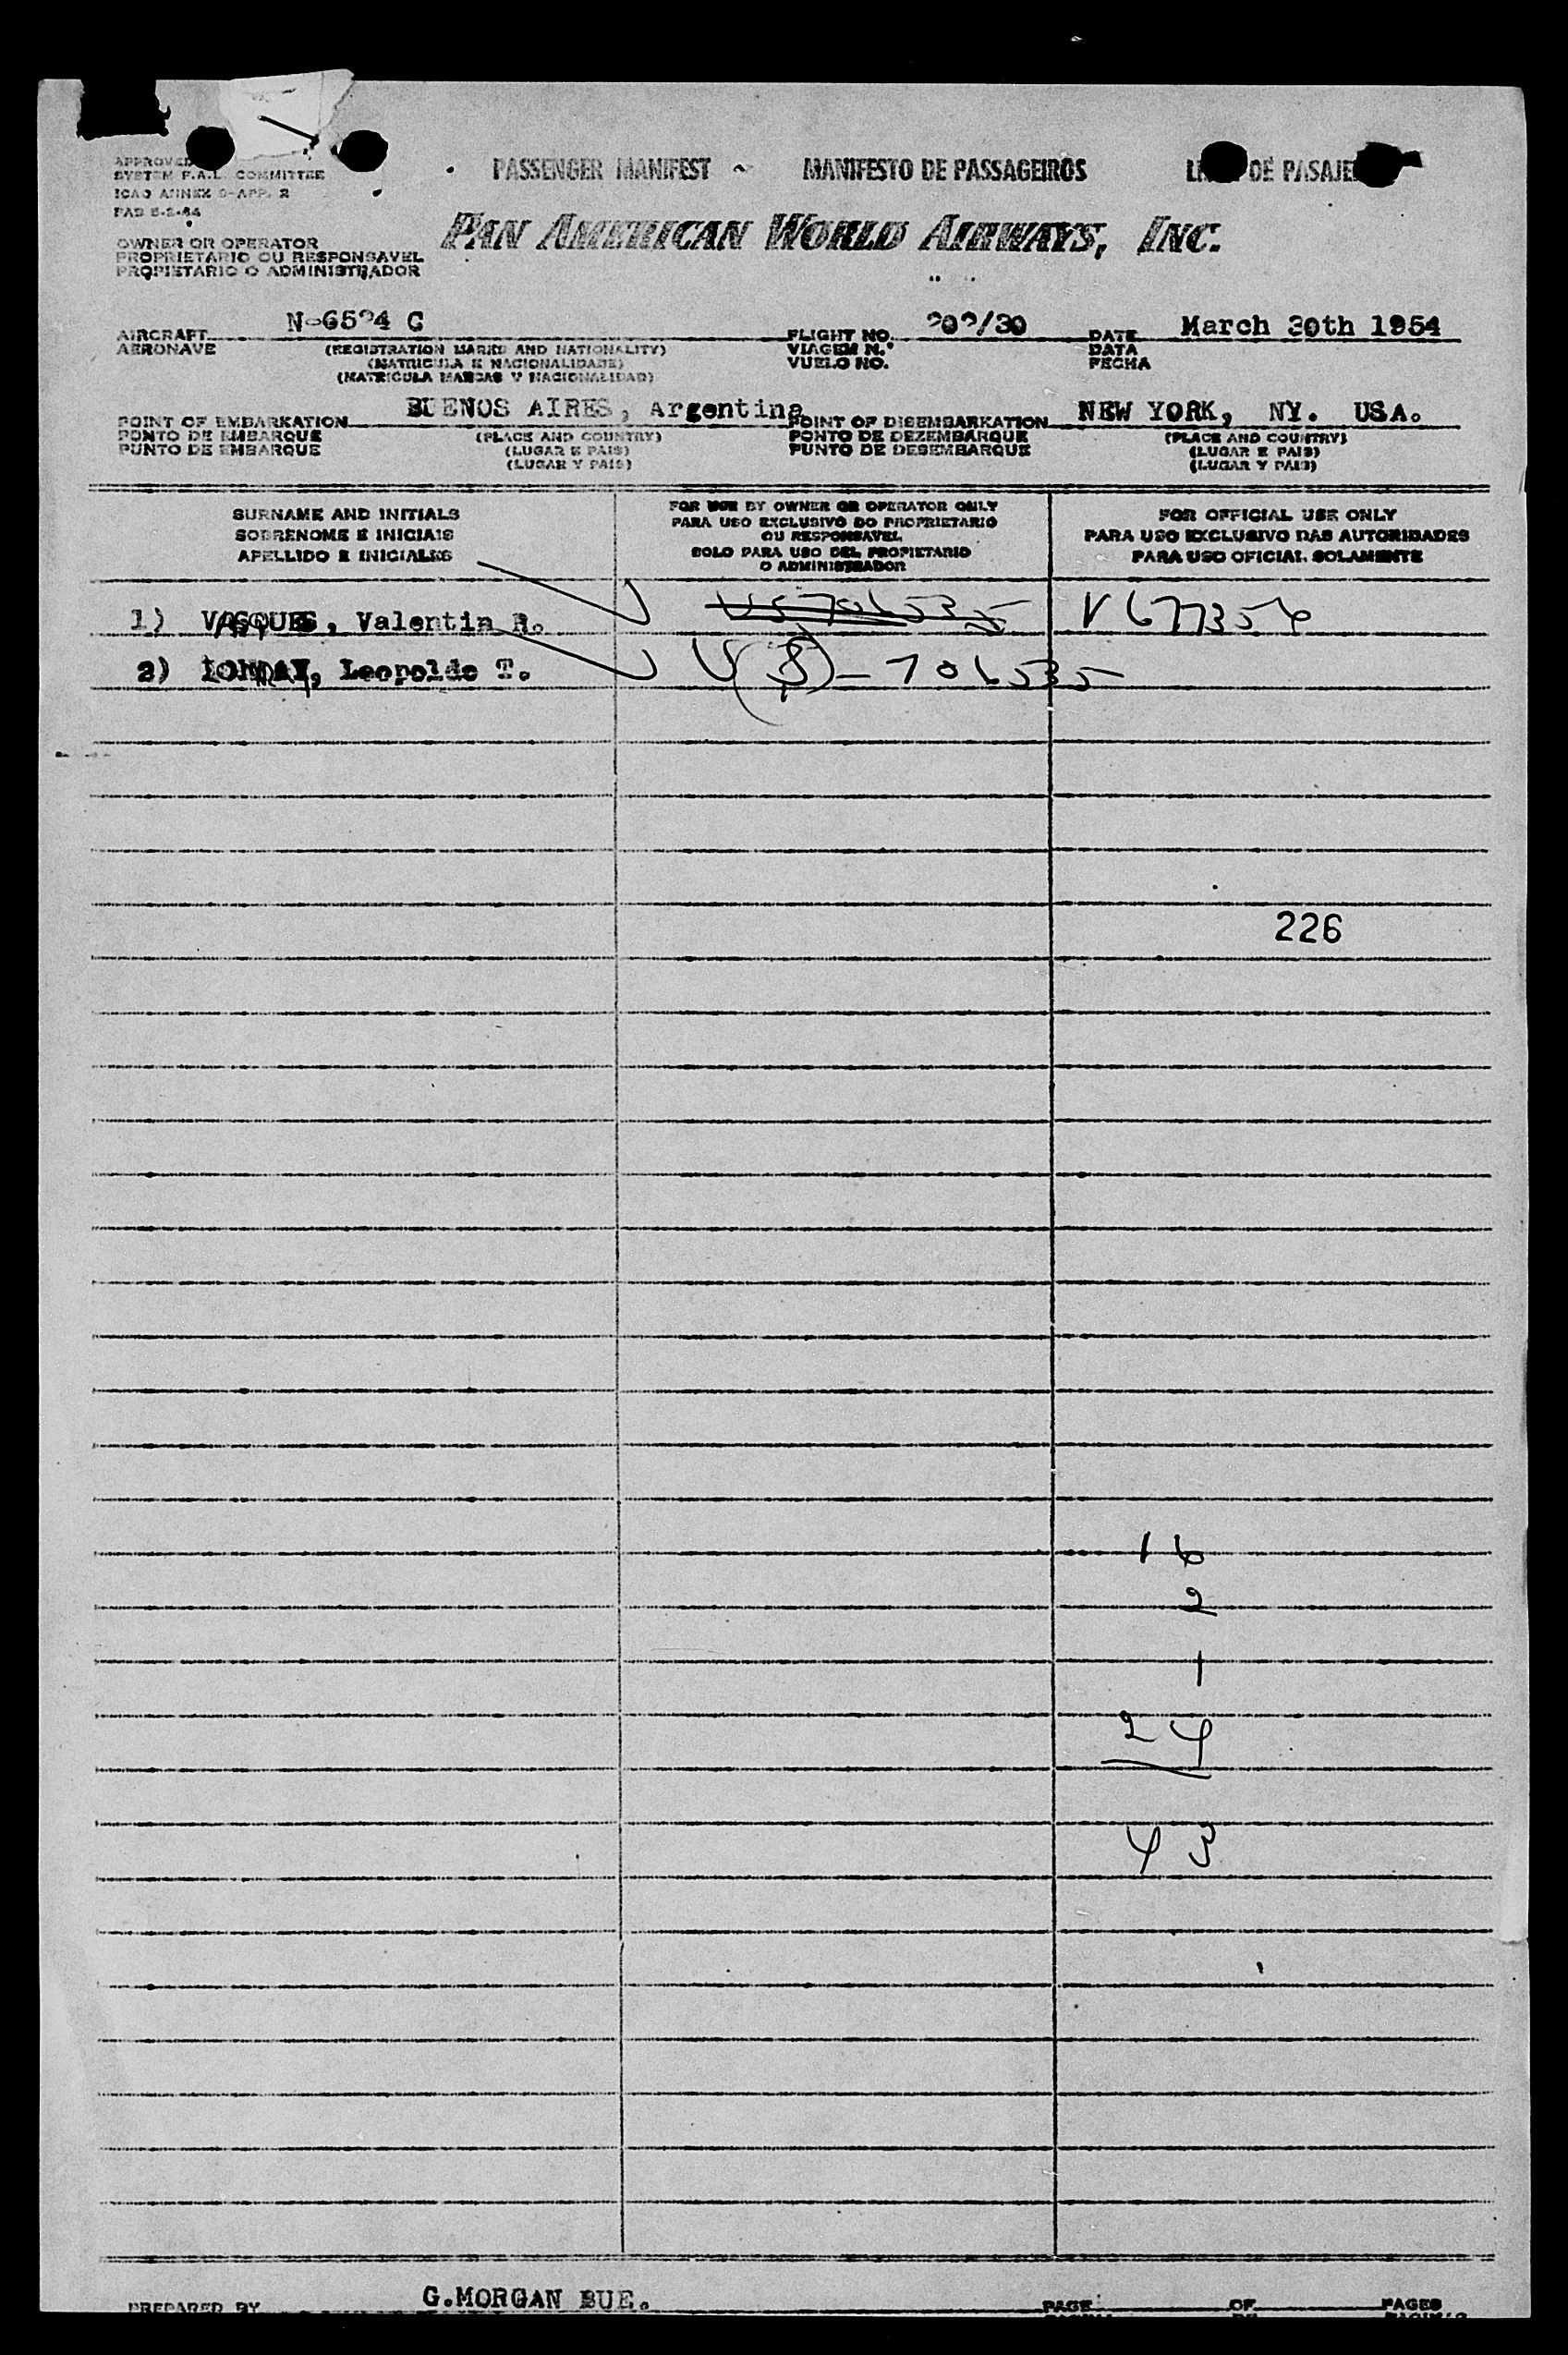 PASSENGER MANIFEST ~ MANIFESTO DE PASSAGEIROS DE
APPROVED
SYSTEM F.A.L. COMMITTEE
ICAO ANNEX 9-APP. 2
PAN AMERICAN WORLD AIRWAYS, INC.
OWNER OR OPERATOR
PROPRIETARIO OU RESPONSAVEL
PROPIETARIO O ADMINISTRADOR
AIRCRAFT FLIGHT NO. DATE March 30th 1954
AERONAVE (REGISTRATION MARKS AND NATIONALITY) VIAGEM N.º DATA
(MATRICULA E NACIONALIDADE) VUELO NO. FECHA
(MATRICULA MARCAS Y NACIONALIDAD)
POINT OF EMBARKATION BUENOS AIRES, Argentina POINT OF DISEMBARKATION NEW YORK, NY. USA.
PONTO DE EMBARQUE (PLACE AND COUNTRY) PONTO DE DEZEMBARQUE (PLACE AND COUNTRY)
PUNTO DE EMBARQUE (LUGAR E PAIS) PUNTO DE DESEMBARQUE (LUGAR E PAIS)
(LUGAR Y PAIS) (LUGAR Y PAIS)
SURNAME AND INITIALS
SOBRENOME E INICIAIS
APELLIDO E INICIALES
FOR USE BY OWNER OR OPERATOR ONLY
PARA USO EXCLUSIVO DO PROPRIETARIO
OU RESPONSAVEL
SOLO PARA USO DEL PROPIETARIO
O ADMINISTRADOR
FOR OFFICIAL USE ONLY
PARA USO EXCLUSIVO DAS AUTORIDADES
PARA USO OFICIAL SOLAMENTE
1) VASQUES, Valentin R. V677356
2) Leopoldo T. 706535
226
16
2
1
24
43
PREPARED BY G.MORGAN BUE. PAGE OF PAGES